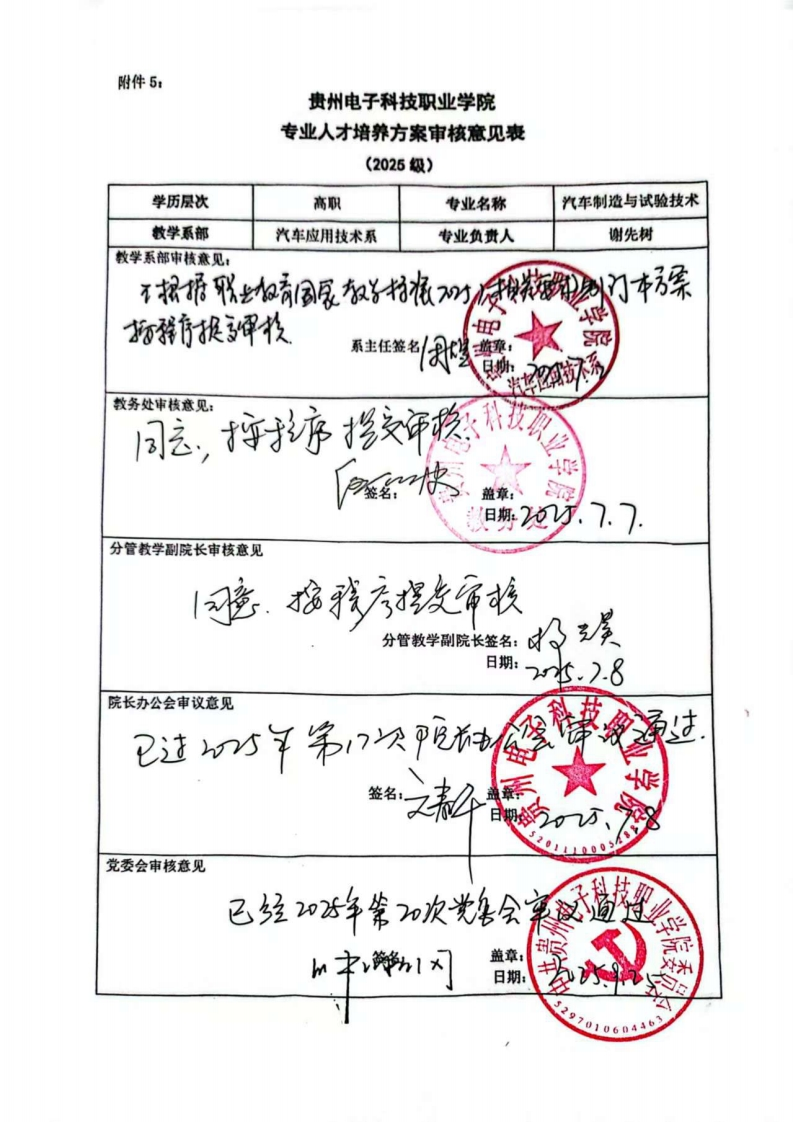 附件 5：
贵州电子科技职业学院
专业人才培养方案审核意见表
（2025 级）
学历层次 高职 专业名称 汽车制造与试验技术
教学系部 汽车应用技术系 专业负责人 谢先树
教学系部审核意见：
根据职业教育国家教学标准2025 制订本方案
按程序提交审核
系主任签名 盖章：
日期：
教务处审核意见：
同意，按程序提交审核
签名： 盖章：
日期：2025.7.7.
贵州电子科技职业学院
教务处
分管教学副院长审核意见
同意，按程序提交审核
分管教学副院长签名：
日期：2025.7.8
院长办公会审议意见
已过2025年第17次院长办公会审议通过.
签名： 盖章：
日期：2025.7.8
贵州电子科技职业学院
党委会审核意见
已经2025年第20次党委会审议通过
盖章：
日期：
中共贵州电子科技职业学院委员会
5297010604463